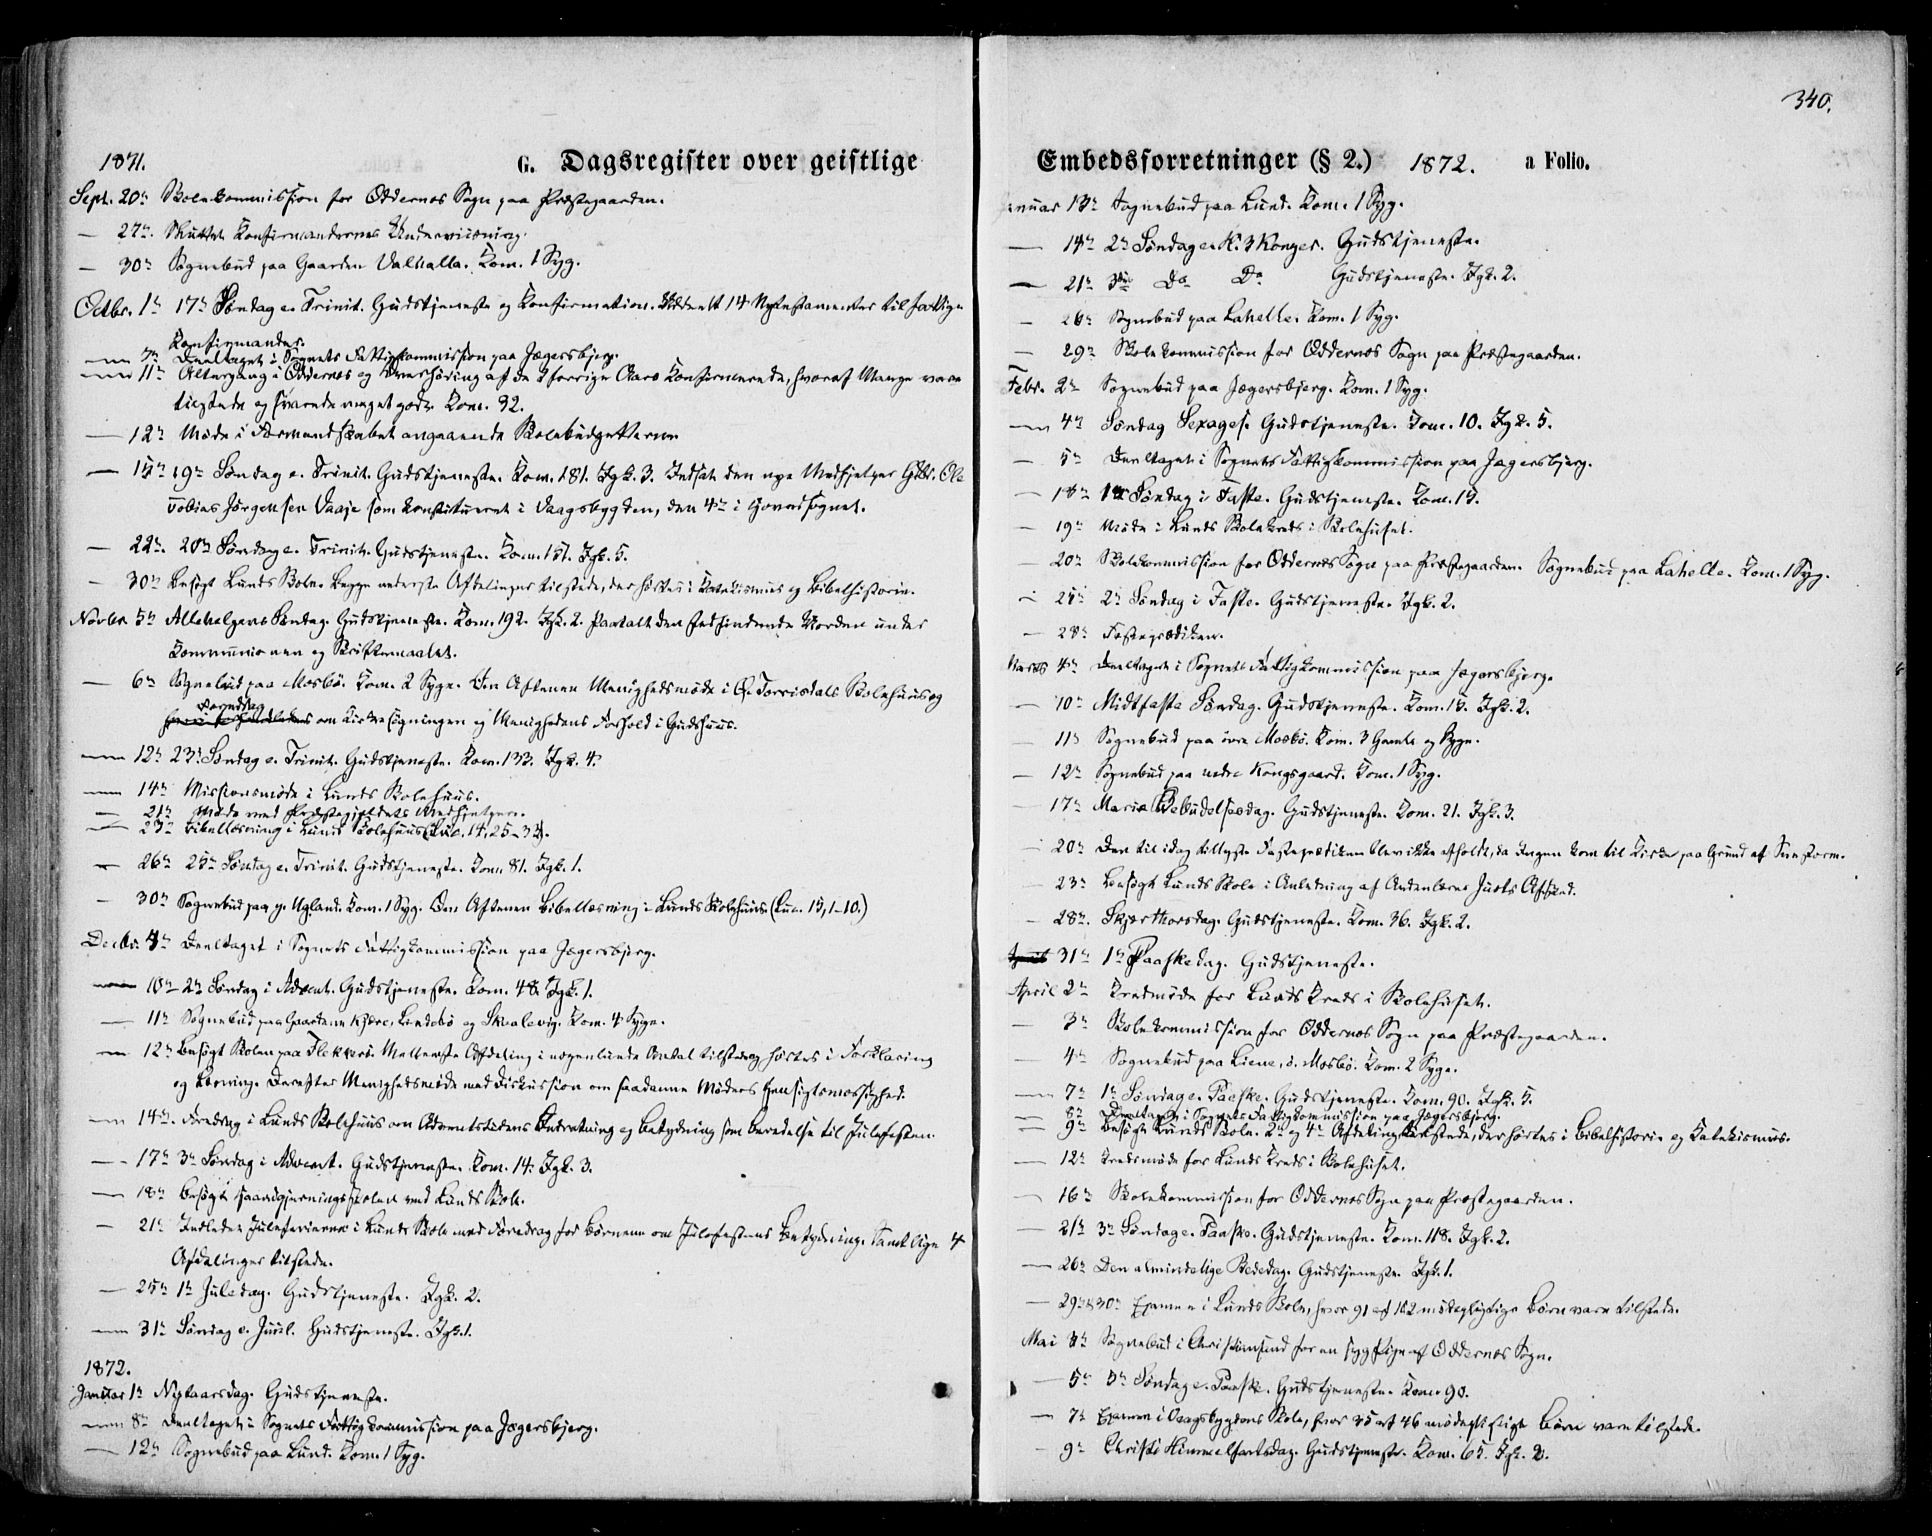 340.
1871. G. Dagsregister over geistlige
Sept. 20de Skolekommission for Oddernes Sogn paa Præstegaarden.
— 27de. Sluttet Konfirmandernes Underviisning.
— 30de Sognebud paa Gaarden Valhalla. Kom. 1 Syg.
Octbr. 1ste 17de Søndag e. Trinit. Gudstjeneste og Konfirmation. Uddeelt 14 Nytestamenter til fattige
Konfirmander.
— 3de Deeltaget i Sognets Fattigkommission paa Jægersbjerg.
— 11te Altergang i Oddernes og Overhøring af de 2 forrige Aars Konfirmerede, hvoraf Mange vare
tilstede og svarede meget godt. Kom. 92.
— 12te Møde i Formandskabet angaaende Skolebudgetterne
— 15de 19de Søndag e. Trinit. Gudstjeneste. Kom. 181. Igk. 3. Indsat den nye Medhjelper Gbr. Ole
Tobias Jørgensen Vaaje som konstitueret i Vaagsbygden, den 4de i Hovedsognet.
— 22de. 20de Søndag e. Trinit. Gudstjeneste. Kom. 151. Igk. 5.
— 30te Besøgt Lunds Skole. Begge nederste Afdelinger tilstede, der hørtes i Katekismus og Bibelhistorie.
Novbr. 5te Allehelgens Søndag. Gudstjeneste. Kom. 192. Igk. 2. Paatalt den stedfindende Uorden under
Kommunionen og Skriftemaalet.
— 6te Sognebud paa Mosbö. Kom. 2 Syge. Om Aftenen Menighedsmøde i Ø. Torrisdals Skolehuus og
Foredrag
om Kirkesøgningen og Menighedens Forhold i Gudshuus.
— 12te 23de Søndag e. Trinit. Gudstjeneste. Kom. 133. Igk. 4.
— 14de Missionsmøde i Lunds Skolehuus.
— 21de Møde med Præstegjeldets Medhjelpere.
— 23de Bibellæsning i Lunds Skolehuus (Luc. 14, 25-35).
— 26de 25de Søndag e. Trinit. Gudstjeneste. Kom. 81. Igk. 1.
— 30te Sognebud paa y. Ugland. Kom. 1 Syg. Om Aftenen Bibellæsning i Lunds Skolehuus (Luc. 15, 1-10.)
Decbr. 4de Deeltaget i Sognets Fattigkommission paa Jægersbjerg.
— 10de 2de Søndag i Advent. Gudstjeneste. Kom. 48. Igk. 1.
— 11te Sognebud paa Gaardene Kjære, Lindebö og Skaalevig. Kom. 4 Syge.
— 12te Besøgt Skolen paa Flekkerö. Mellemste Afdeling i nogenlunde Antal tilstede og hørtes i Forklaring
og Læsning. Derefter Menighedsmøde med Diskussion om saadanne Møders Hensigtsmæssighed.
— 14de. Foredrag i Lunds Skolehuus om Adventstidens Indretning og Betydning som Beredelse til Julefesten.
— 17de 3de Søndag i Advent. Gudstjeneste. Kom. 14. Igk. 3.
— 18de Besøgt Haandgjerningsskolen ved Lunds Skole.
— 21de Indledet Juleferierne i Lunds Skole med Foredrag for Børnene om Julefestens Betydning. Samtlige 4
Afdelinger tilstede.
— 25de 1ste Juledag. Gudstjeneste. Igk. 2.
— 31te Søndag e. Juul. Gudstjeneste. Igk. 1.
1872.
Januar 1ste Nytaarsdag. Gudstjeneste.
— 8de Deeltaget i Sognets Fattigkommission paa Jægersbjerg.
— 12te Sognebud paa Lund. Kom. 1 Syg.
Embedsforretninger (§ 2.) 1872. a Folio.
Januar 13de Sognebud paa Lund. Kom. 1 Syg.
— 14de 2de Søndag e. H. 3 Konger. Gudstjeneste.
— 21de 3die Do Do Gudstjeneste. Igk. 2.
— 26de Sognebud paa Lahelle. Kom. 1 Syg.
— 29de Skolekommission for Oddernes Sogn paa Præstegaarden.
Febr. 2de Sognebud paa Jægersbjerg. Kom. 1 Syg.
— 4de Søndag Sexages. Gudstjeneste. Kom. 10. Igk. 5.
— 5te Deeltaget i Sognets Fattigkommission paa Jægersbjerg.
— 18de 1ste Søndag i Faste. Gudstjeneste. Kom. 15.
— 19de Møde i Lunds Skolekreds i Skolehuset.
— 20de Skolekommission for Oddernes Sogn paa Præstegaarden. Sognebud paa Lahelle. Kom. 1 Syg.
— 25de 2de Søndag i Faste. Gudstjeneste. Igk. 2.
— 28de Fasteprædiken.
Marts 4de Deeltaget i Sognets Fattigkommission paa Jægersbjerg.
— 10de Midtfaste Søndag. Gudstjeneste. Kom. 15. Igk. 2.
— 11te Sognebud paa øvre Mosbö. Kom. 3 Gamle og Syge.
— 12te Sognebud paa nedre Kongsgaard. Kom. 1 Syg.
— 17de Mariæ Bebudelsesdag. Gudstjeneste. Kom. 21. Igk. 3.
— 20de Den til idag tillyste Fasteprædiken blev ikke afholdt, da Ingen kom til Kirke paa Grund af Sneestorm.
— 23de Besøgt Lunds Skole i Anledning af Andenlærer Juels Afsked.
— 28de. Skjærthorsdag. Gudstjeneste. Kom. 36. Igk. 2.
April 31te 1ste Paaskedag. Gudstjeneste.
April 2de Kredsmøde for Lunds Kreds i Skolehuset.
— 3de Skolekommission for Oddernes Sogn paa Præstegaarden.
— 4de Sognebud paa Liene, ö. Mosbö. Kom. 2 Syge.
— 7de 1ste Søndag e. Paaske. Gudstjeneste. Kom. 90. Igk. 5.
— 8de Deeltaget i Sognets Fattigkommission paa Jægersbjerg.
— 9de Besøgt Lunds Skole. 2de og 4de Afdeling tilstede, der hørtes i Bibelhistorie og Katekismus.
— 12te Kredsmøde for Lunds Kreds i Skolehuset.
— 16de Skolekommission for Oddernes Sogn paa Præstegaarden.
— 21de 3de Søndag e. Paaske. Gudstjeneste. Kom. 118. Igk. 2.
— 26de Den almindelige Bededag. Gudstjeneste. Igk. 1.
— 29de & 30te Examen i Lunds Skole, hvor 91 af 102 mødepligtige Børn vare tilstede.
Mai 3de Sognebud i Christiansand for en syg Pige af Oddernes Sogn.
— 5te 5te Søndag e. Paaske. Gudstjeneste. Kom. 90.
— 7de Examen i Vaagsbygdens Skole, hvor 35 af 46 mødepligtige Børn vare tilstede.
— 9de Christi Himmelfartsdag. Gudstjeneste. Kom. 65. Igk. 2.